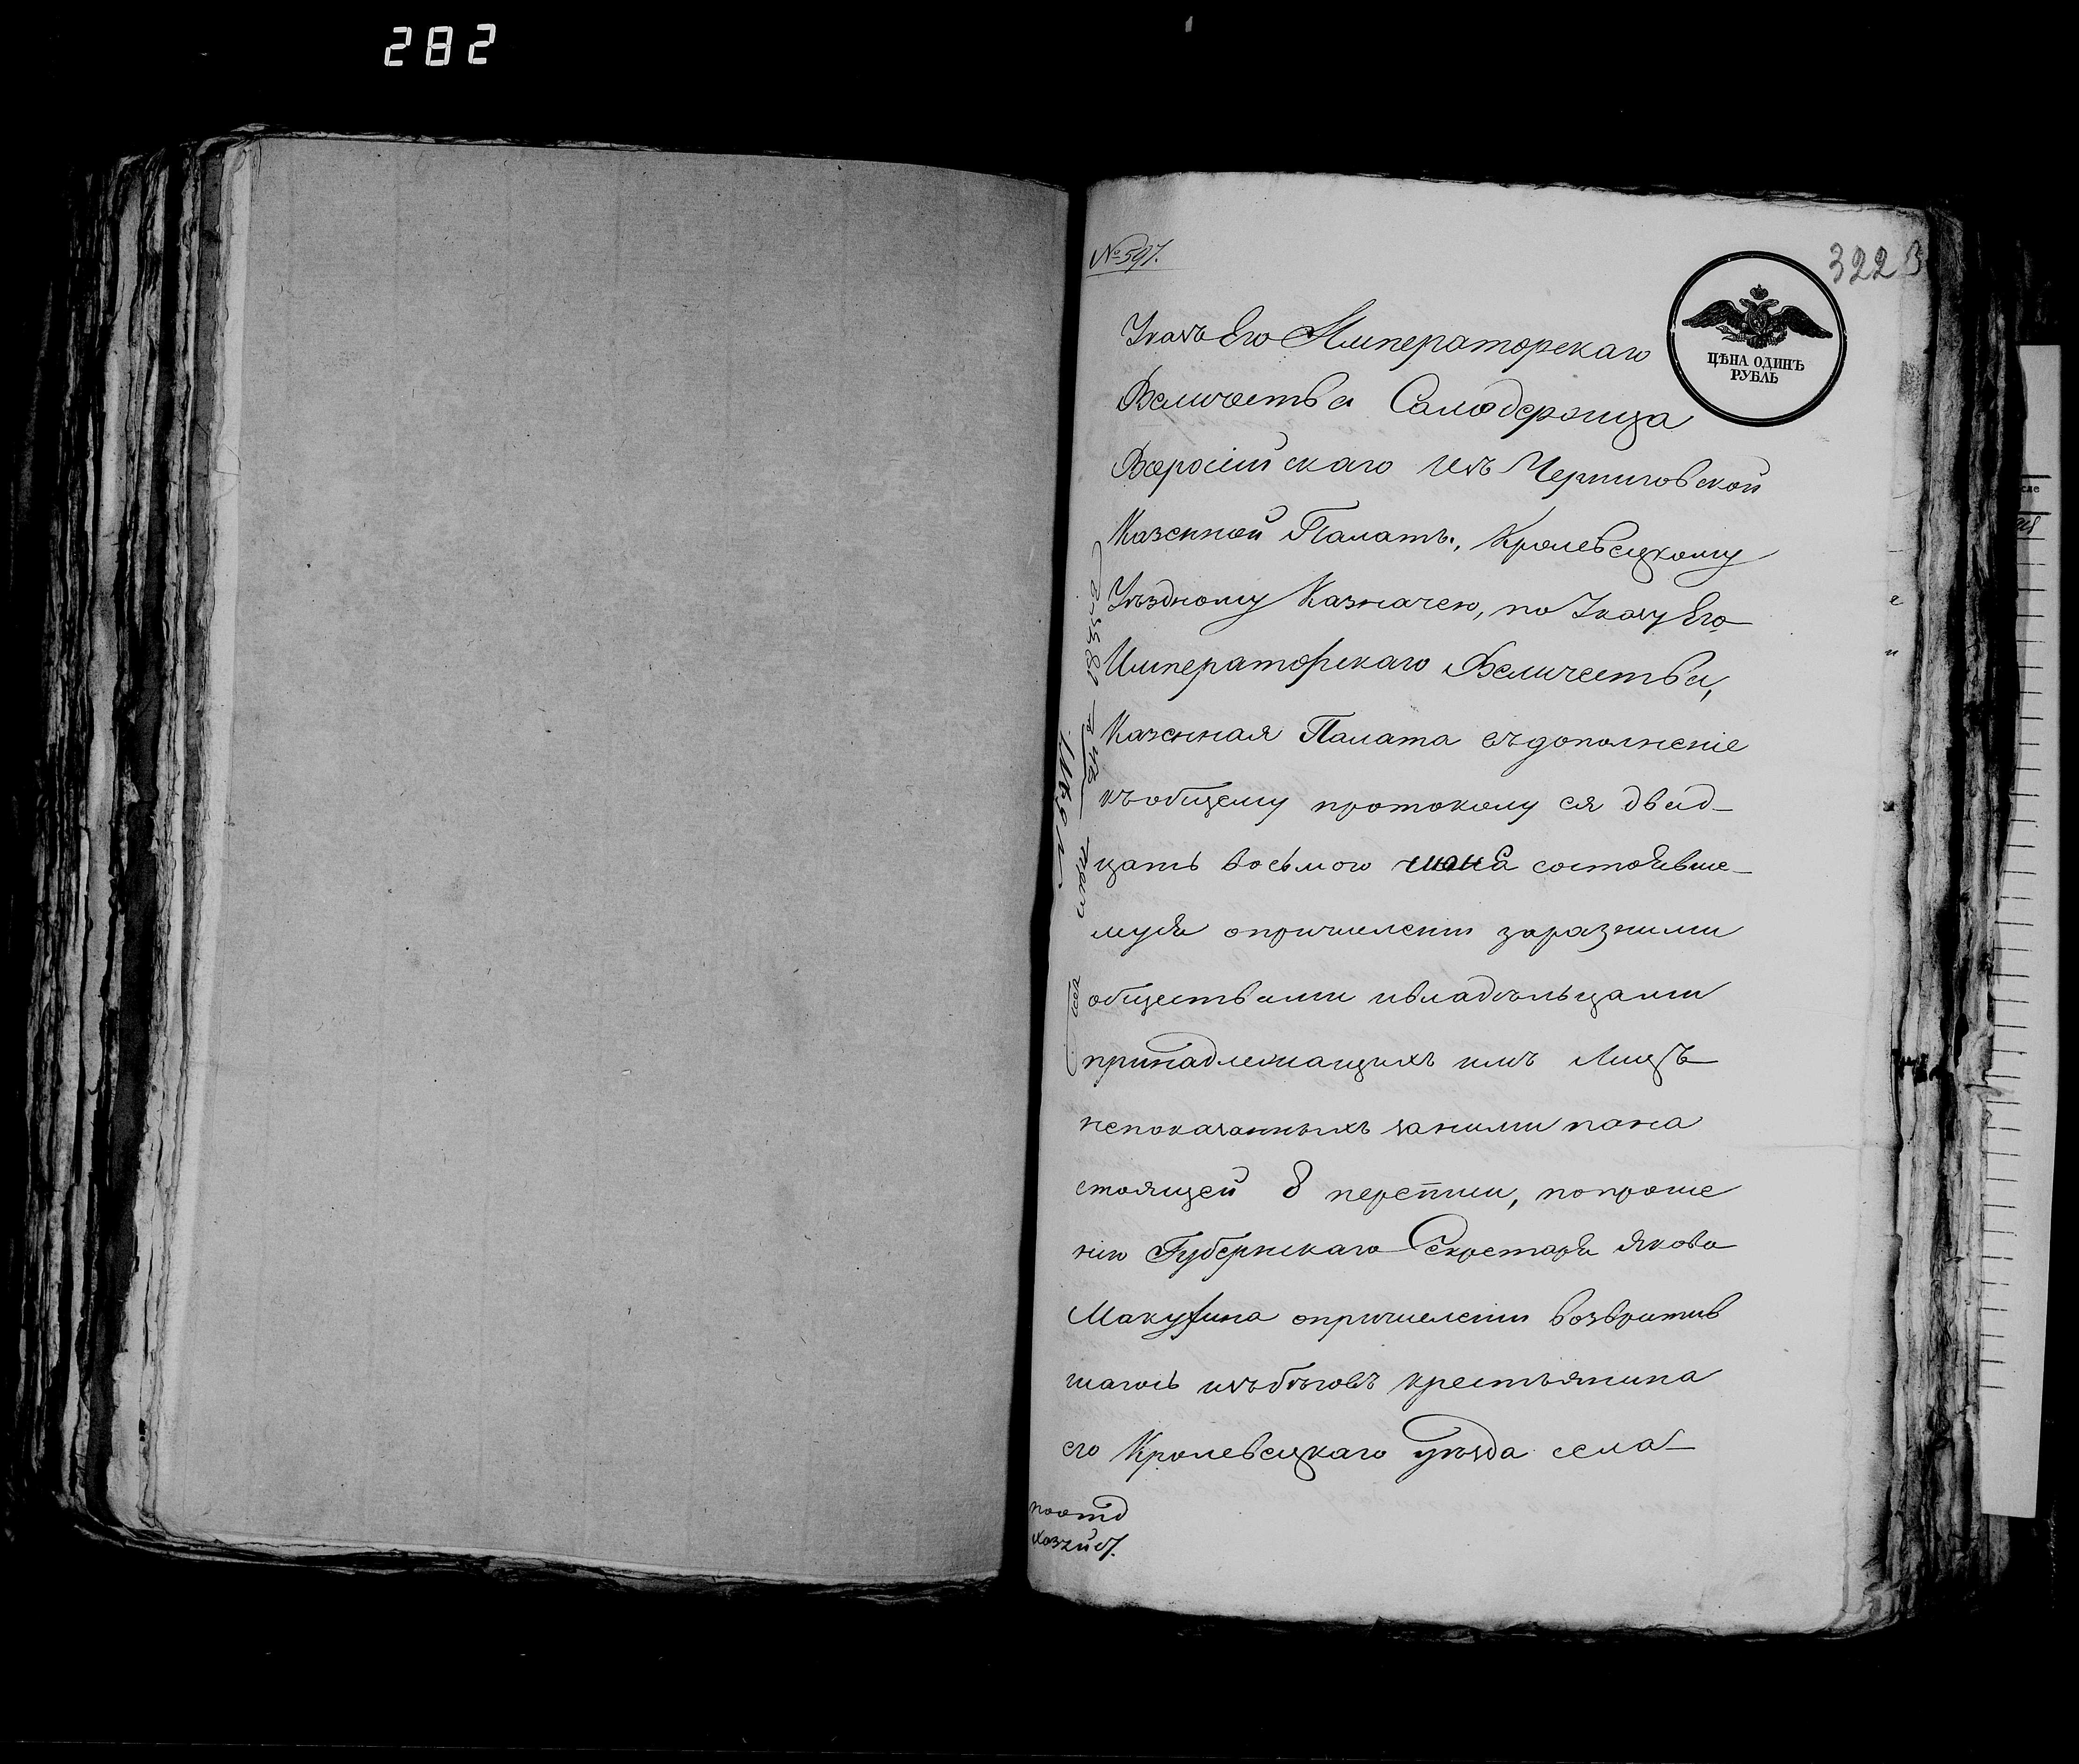 282
№ 597.
322
ЦѢНА ОДИНЪ
РУБЛЬ
Указъ Его Императорскаго
Величества Самодержца
Всеросійскаго изъ Черниговской
Казенной Палаты, Кролевецкому
Уѣздному Казначею, по Указу Его
Императорскаго Величества,
Казенная Палата въ дополненіе
къ общему протоколу ея двад-
цать восьмого состоявше-
муся опричислении заразными
обществами ивладѣльцами
принадлежащихъ имъ Лицъ
непоказанныхъ заними пона
стоящей 8 переписи, попроше
нію Губернскаго Секретаря Якова
Макухина опричислении возвратив
шагось изъ бѣговъ крестьянина
его Кролевецкаго уѣзда села
поотд